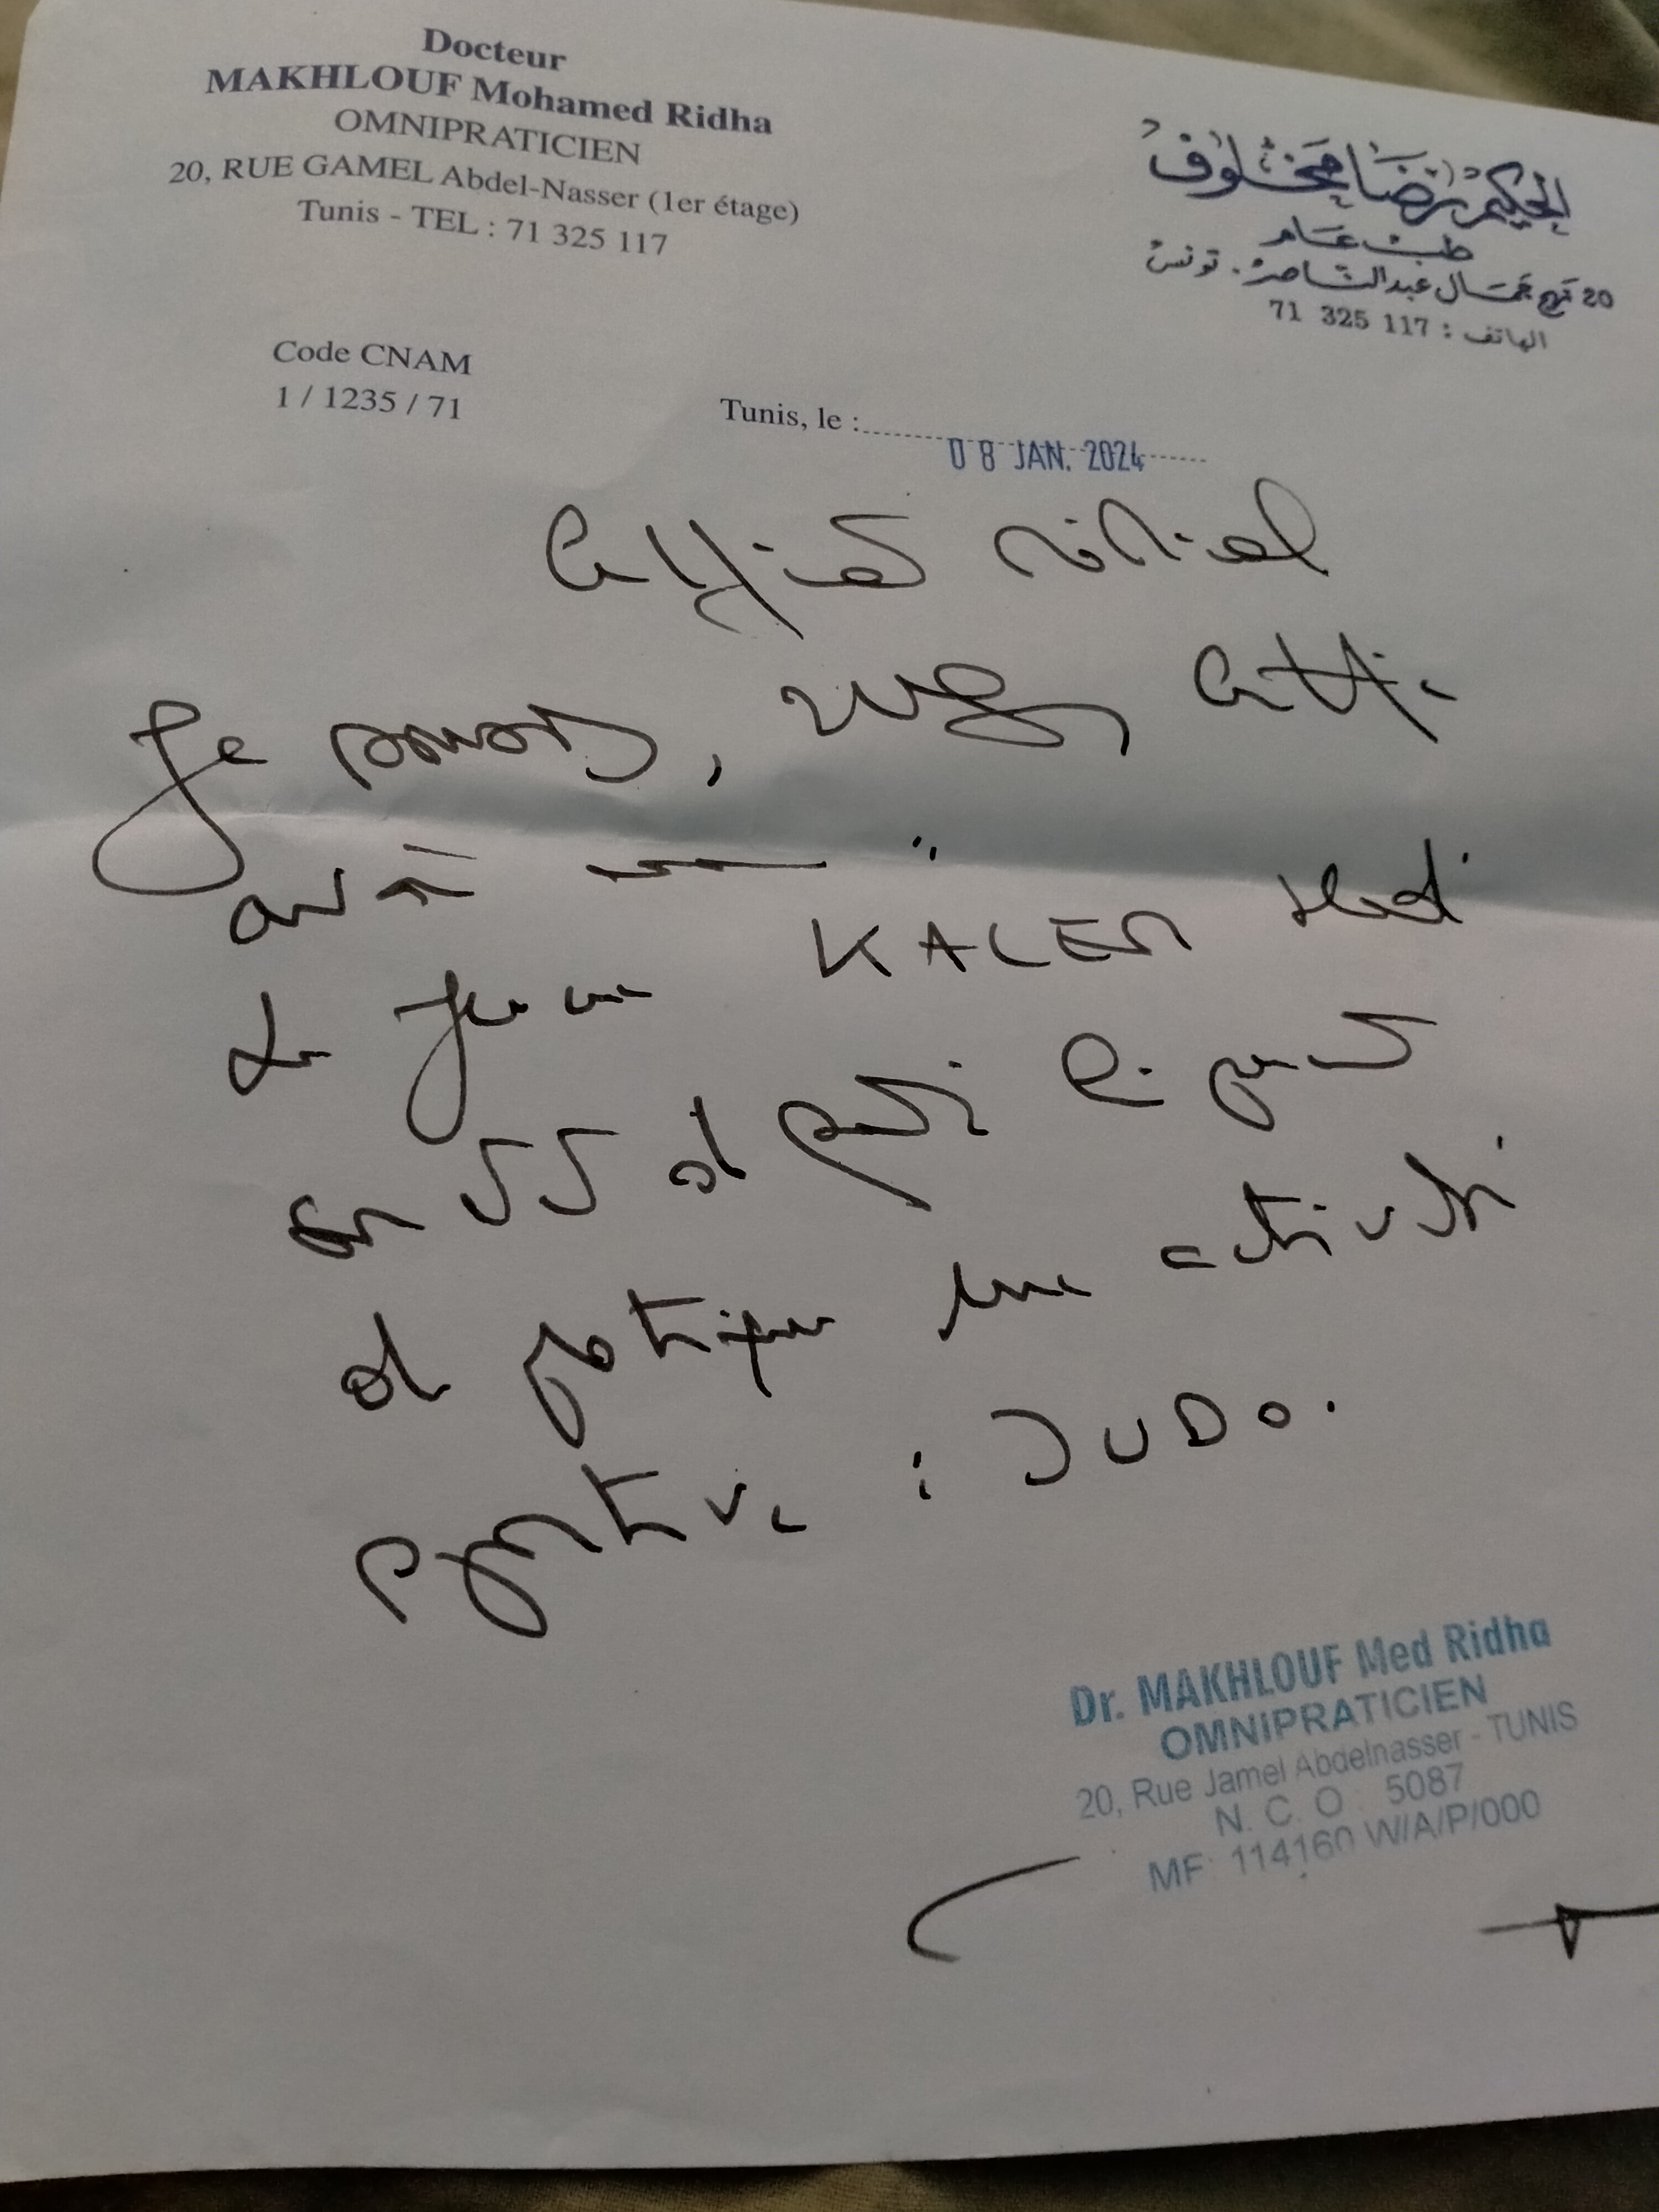 Docteur
MAKHLOUF Mohamed Ridha
OMNIPRATICIEN
20, RUE GAMEL Abdel-Nasser (1er étage)
Tunis - TEL : 71 325 117
الحكيم رضا مخلوف
طب عام
20 نهج جمال عبد الناصر. تونس
الهاتف : 117 325 71
Code CNAM
1 / 1235 / 71
Tunis, le : 08 JAN. 2024
Certificat médical
Je soussigné, certifie
avoir examiné
le jeune KACEM Hedi
en et lui permet
et pratiquer une activité
sportive : JUDO.
Dr. MAKHLOUF Med Ridha
OMNIPRATICIEN
20, Rue Jamel Abdelnasser - TUNIS
N. C. O. 5087
MF: 114160 W/A/P/000